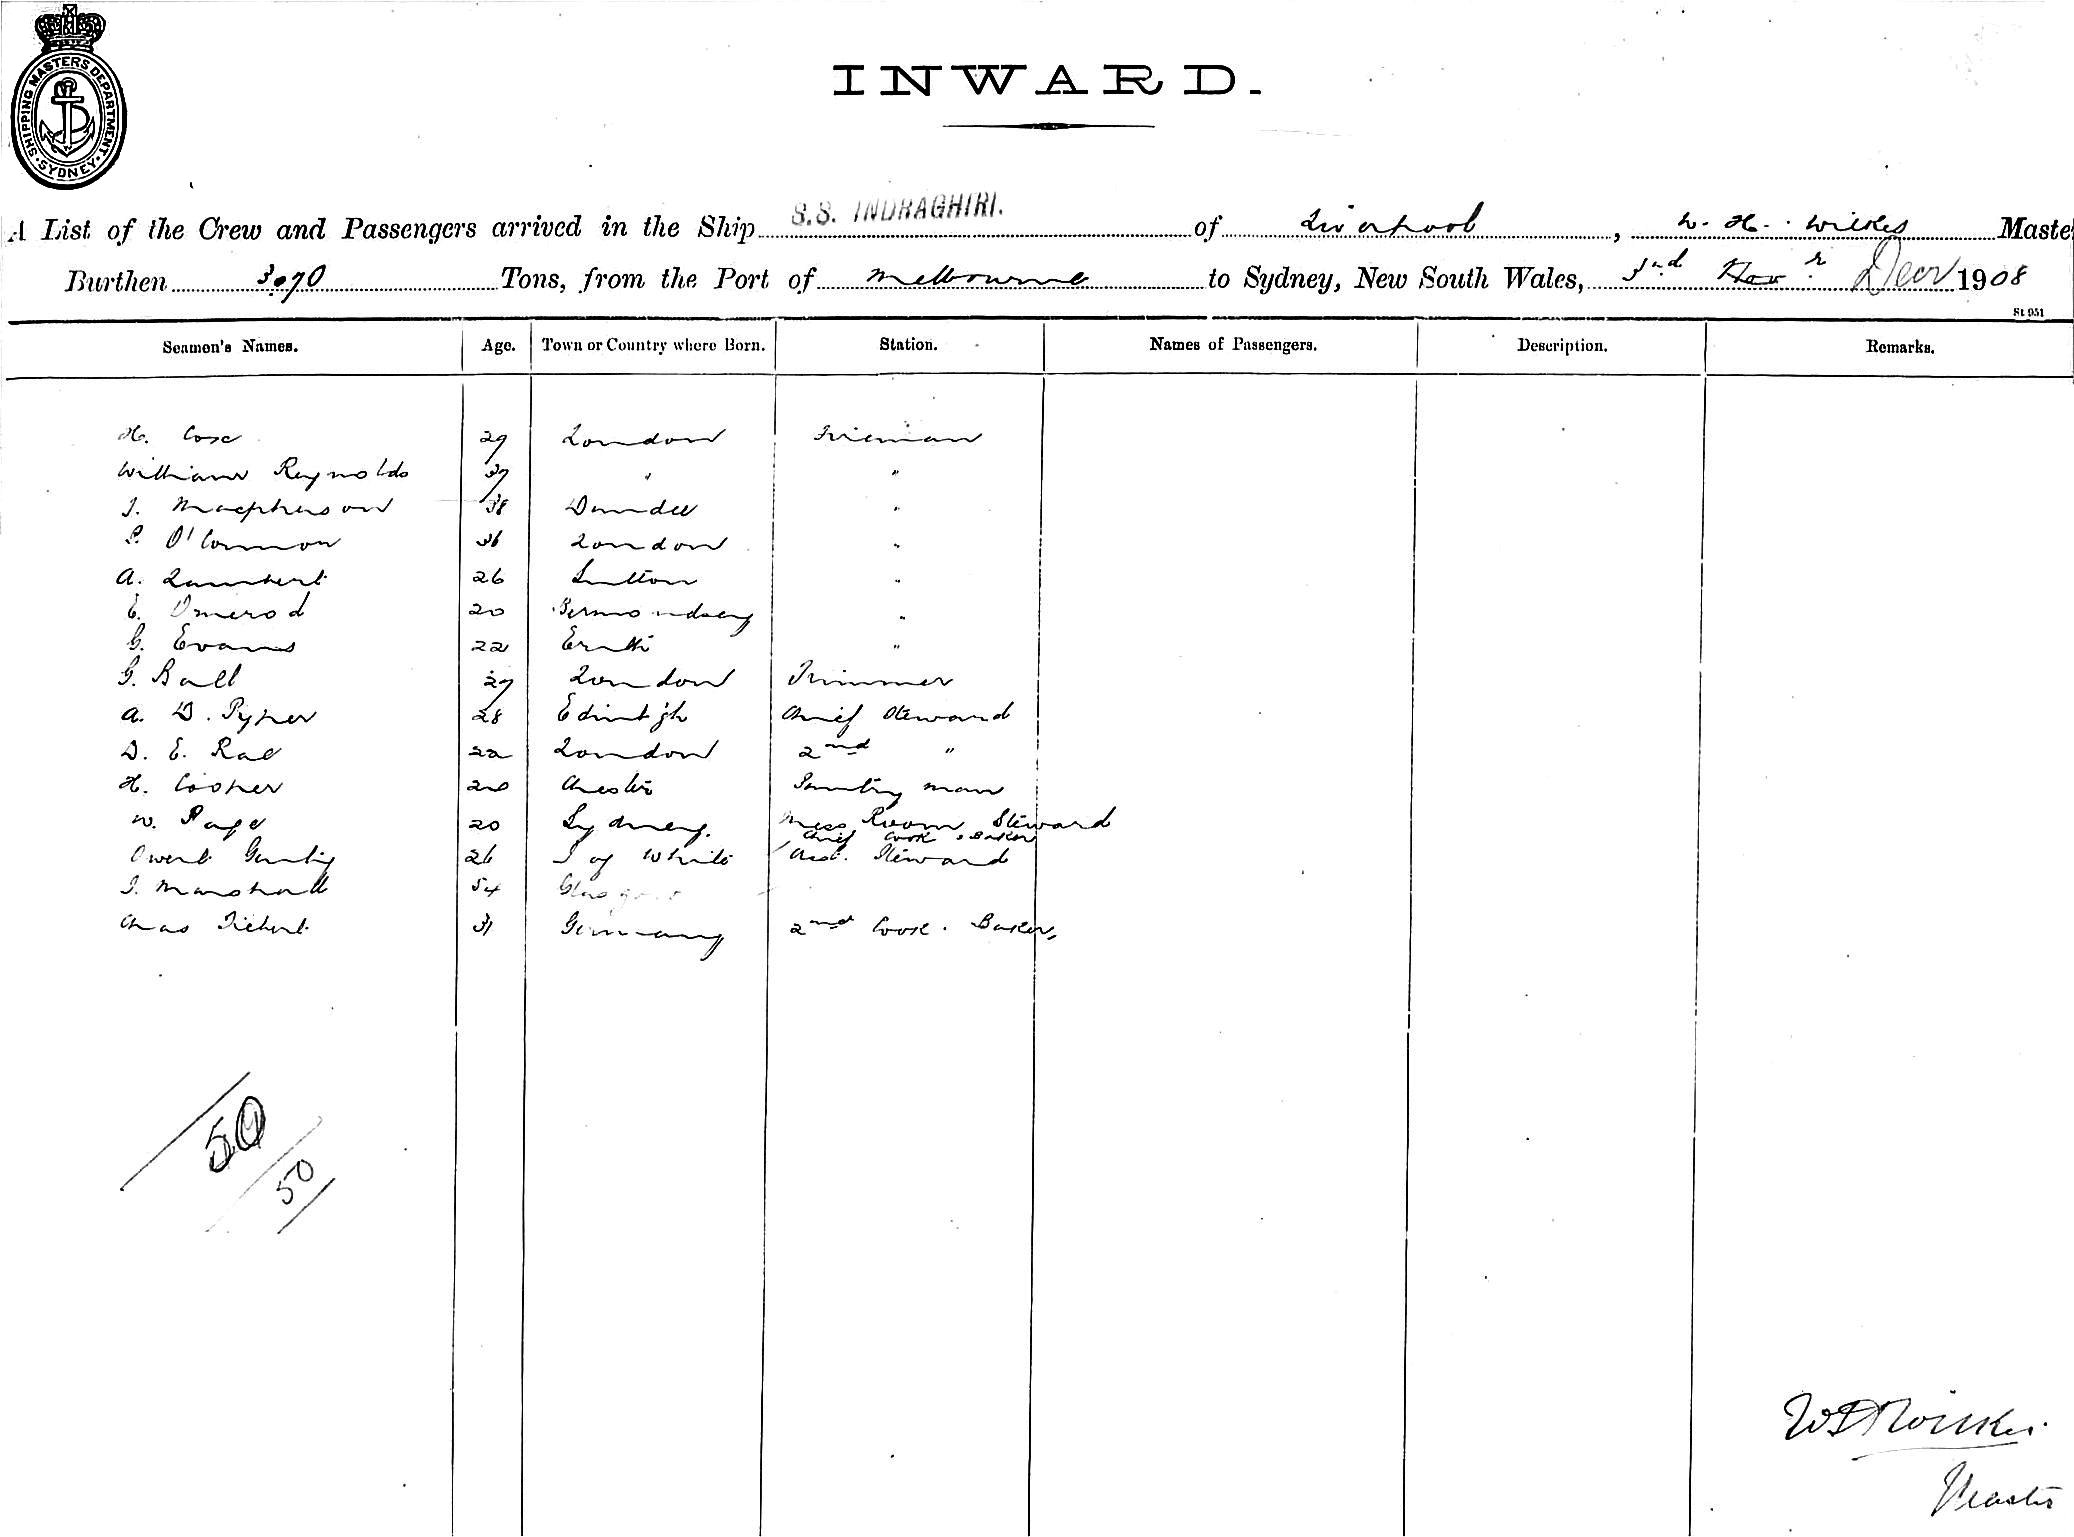 SHIPPING MASTERS DEPARTMENT. SYDNEY.
INWARD.
A List of the Crew and Passengers arrived in the Ship S.S. INDRAGHIRI. of Liverpool, W. H. Wilkes Maste
Burthen 3070 Tons, from the Port of Melbourne to Sydney, New South Wales, 3rd Decr 1908
St 951
Seamen's Names. Age. Town or Country where Born. Station. Names of Passengers. Description. Remarks.
H. Cose 29 London Fireman
William Reynolds 37 " "
J. Macpherson 38 Dundee "
P. O'Connor 36 London "
A. Lambert 26 Sutton "
E. Omerod 20 Bermondsey "
G. Evans 22 Erith "
G. Ball 27 London Trimmer
A. D. Pyper 28 Edinb'gh Chief Steward
D. E. Rae 22 London 2nd "
H. Cooper 20 Chester Pantry man
W. Page 20 Sydney. Mess Room Steward
Chief Cook & Baker
Owen 26 I of White Asst. Steward
J. Marshall 54 Glasgow
Chas 31 Germany 2nd Cook . Baker,
50
50
W H Wilkes
Master